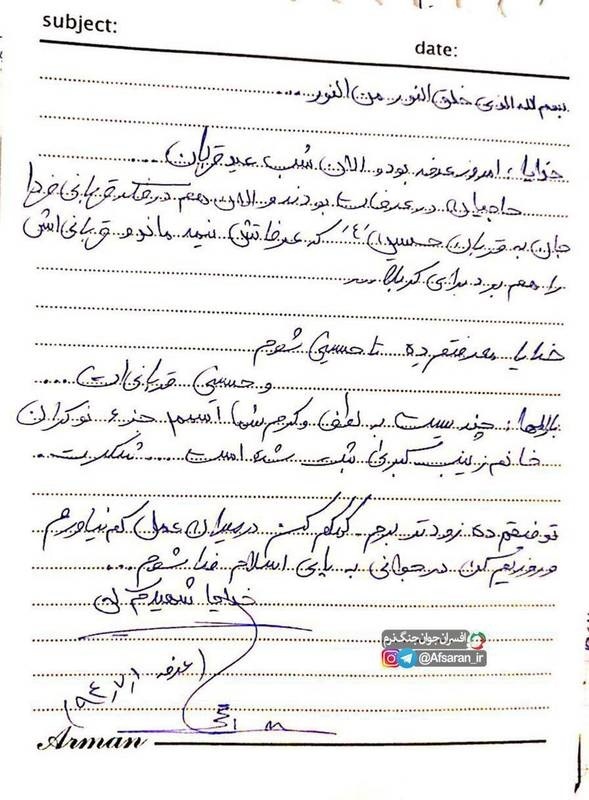 subject:
date:
بسم الله الذی خلق النور من النور ...
خدایا، امروز عرفه بود و الان شب عید قربان ....
حاجیان در عرفات بودند و الان هم در فکر قربانی فردا
جان به قربان حسین (ع) که عرفاتش نیمه ماند و قربانی‌اش
را هم برد برای کربلا ...
خدایا معرفتم ده تا حسینی شوم
و حسینی قربانی‌ات ....
بارالها؛ چندیست به لطف و کرم شما اسمم جزء نوکران
خانم زینب کبری ثبت شده است ... شکرت ..
توفیقم ده زودتر بروم. کمکم کن در میدان عمل کم نیاورم
و روزیم کن در جوانی به پای اسلام فدا شوم ...
خدایا شهیدم کن
افسران جوان جنگ نرم
@Afsaran_ir
عرفه
۹۴/۷/۱
Arman